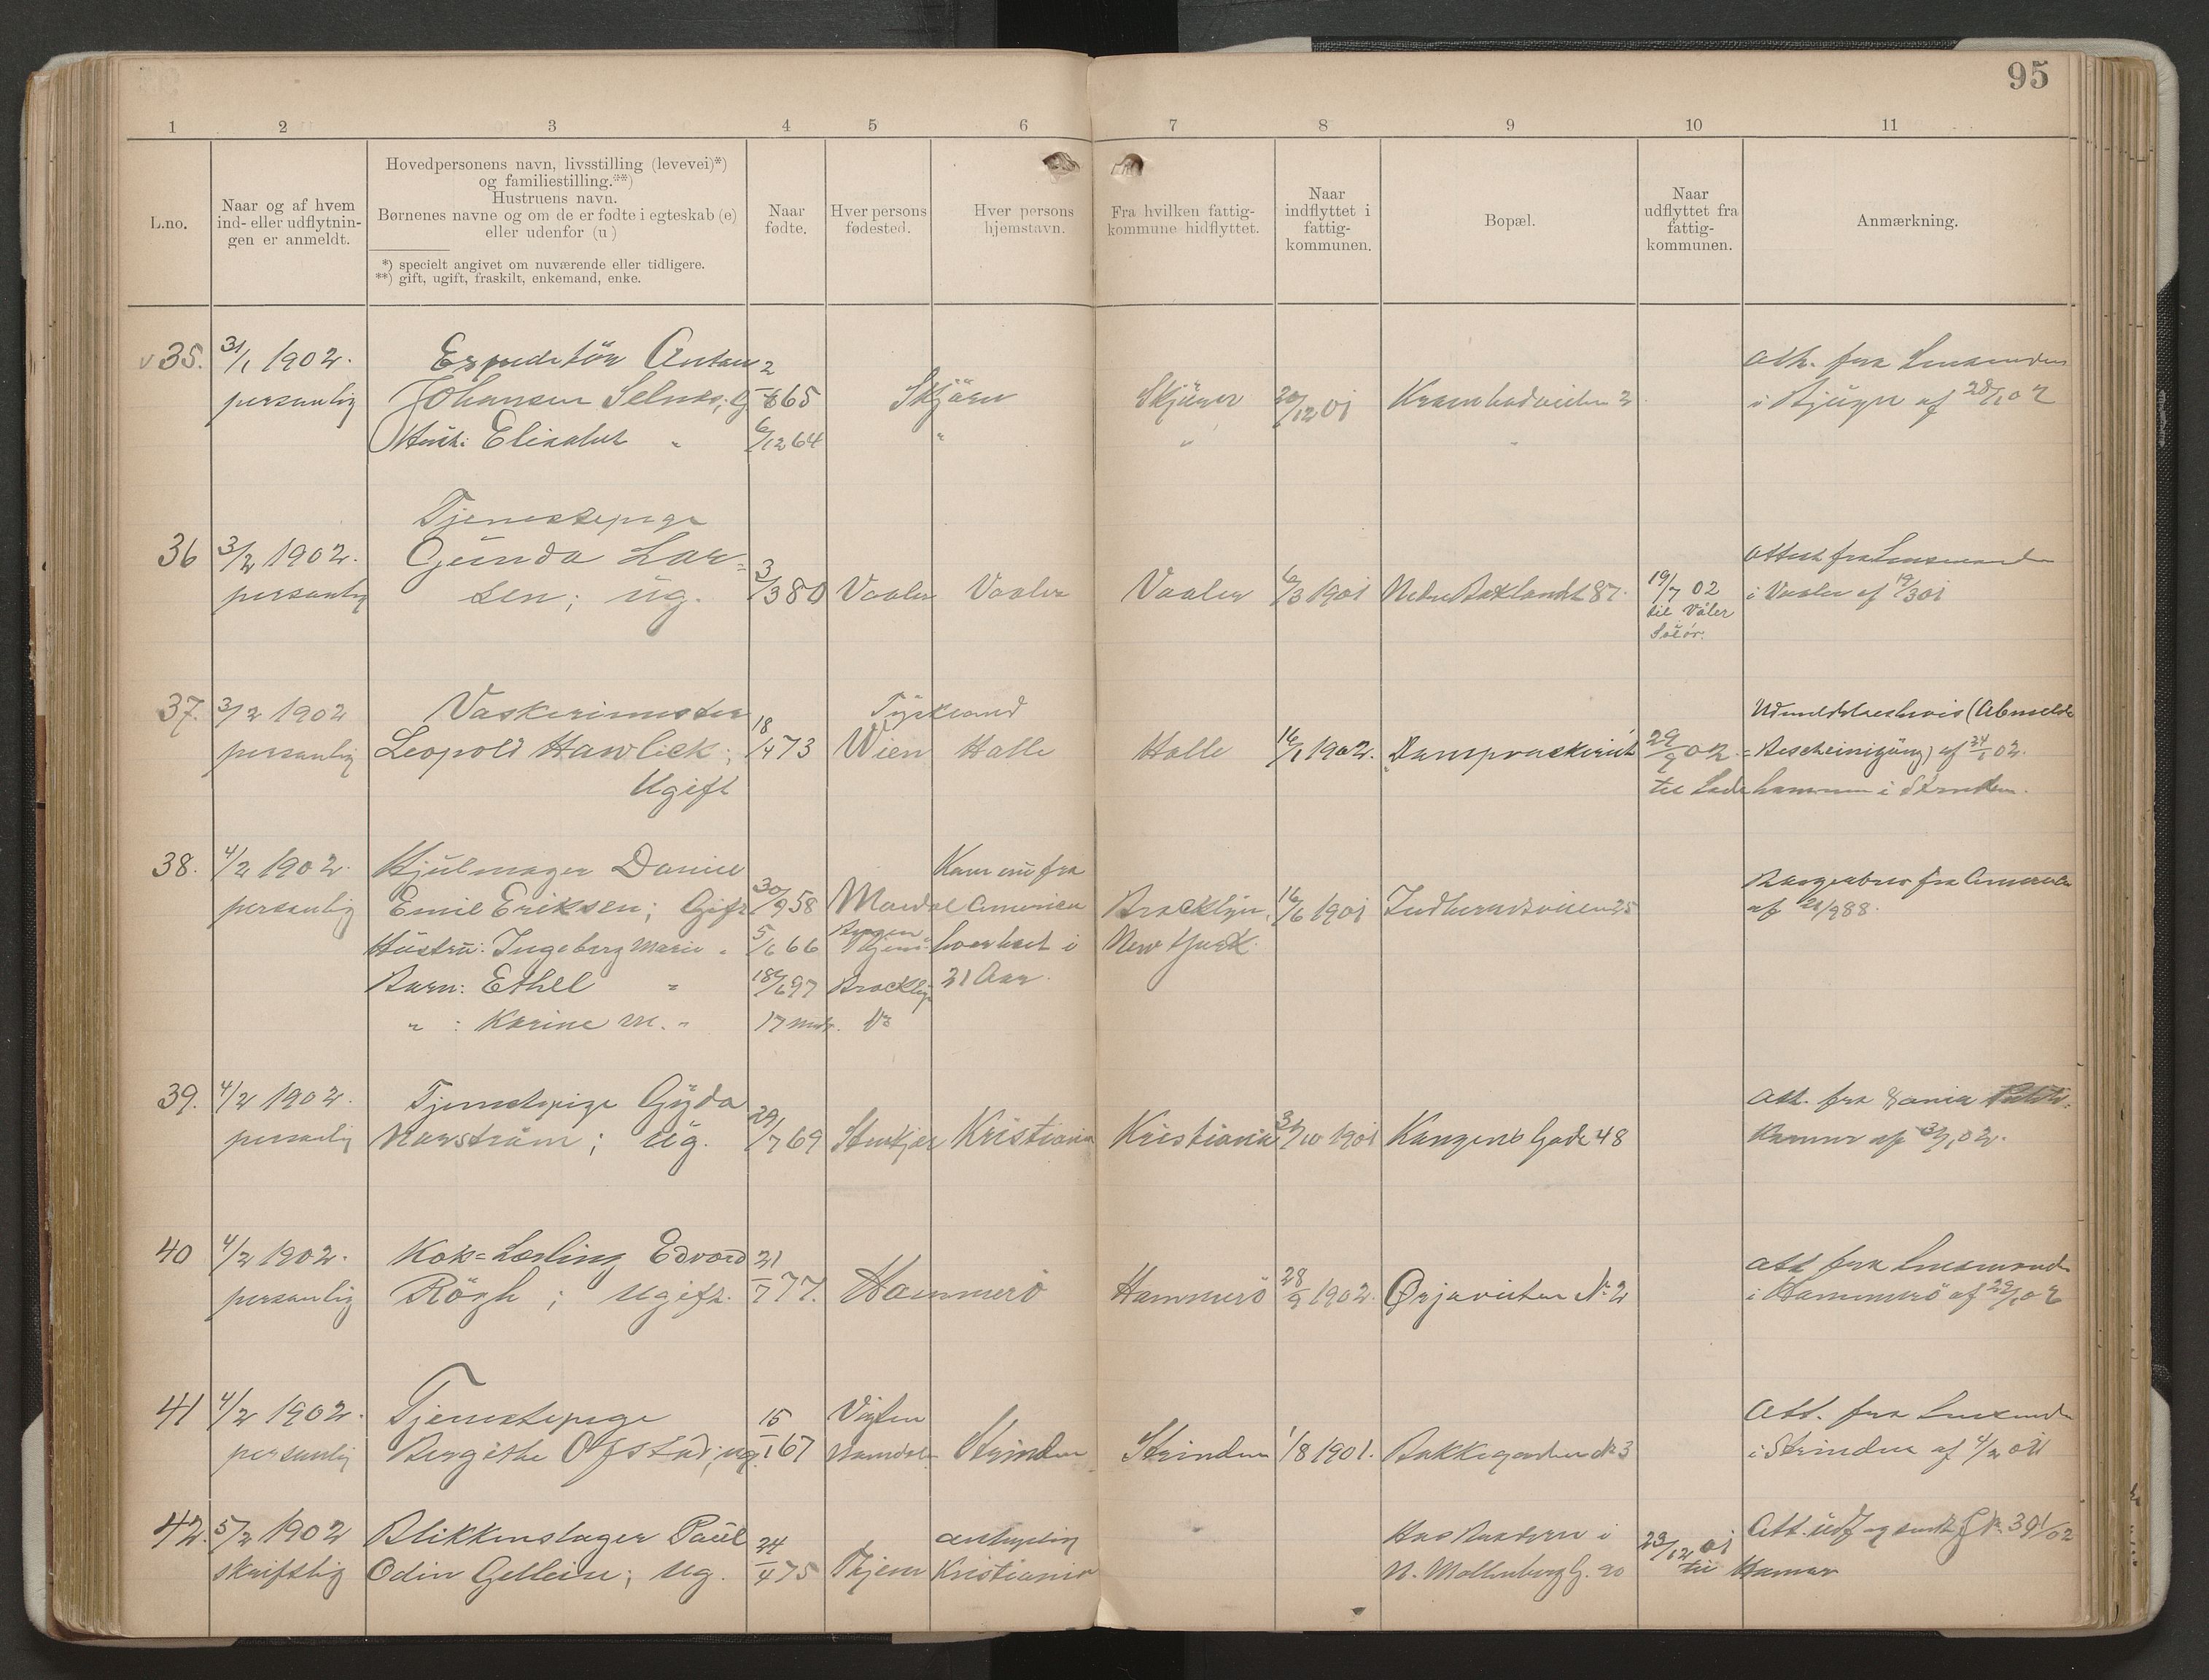 95
1 2 3 4 5 6 7 8 9 10 11
L.no.
Naar og af hvem
ind- eller udflytnin-
gen er anmeldt.
Hovedpersonens navn, livsstilling (levevei)*)
og familiestilling.**)
Hustruens navn.
Børnenes navne og om de er fødte i egteskab (e)
eller udenfor (u)
*) specielt angivet om nuværende eller tidligere.
**) gift, ugift, fraskilt, enkemand, enke.
Naar
fødte.
Hver persons
fødested.
Hver persons
hjemstavn.
Fra hvilken fattig-
kommune hidflyttet.
Naar
indflyttet i
fattig-
kommunen.
Bopæl.
Naar
udflyttet fra
fattig-
kommunen.
Anmærkning.
35. 31/1 1902. Expeditör Anton
personlig Johansen Selnes; 65 20/12 01
Hust: Elisabet " 6/12 64 " " "
att. fra Lensmanden
i af 28/1 02
Tjenestepige
36 3/2 1902. Gunda Lar=
personlig sen; ug. 3/3 80 Vaaler Vaaler Vaaler 6/3 1901 Nedre Baklandt 87. 19/7 02
til Våler
Solör.
Attest fra Lensmanden
i Vaaler af 19/3 01
37. 3/2 1902 Vaskerimester Tyskland
personlig Leopold Hawlick; 18/4 73 Wien Halle Halle 16/1 1902. Dampvaskeriet 29/9 02
Ugift til Ladehammeren i Strinden.
(Abmelde
=Bescheinigung) af 24/1 02.
38. 4/2 1902. Hjulmager Daniel Kom nu fra
personlig Emil Eriksen; Gift 30/9 58 Mandal America Brooklyn, 16/6 1901 Indherredsveien 25
Hustru: Ingeborg Marie " 5/6 66 hvorhest i New York.
Barn: Ethel " 97 Brooklyn 21 Aar.
" : Karine M. " 17 mdr. Do
Borgerbrev fra America
af 88.
39. 4/2 1902. Tjenestepige Gyda
personlig Norström; ug. 29/7 69 Stenkjær Kristiania Kristiania 31/10 1901 Kongens Gade 48
Att. fra
Kammer af 02.
40 4/2 1902. Kok=Lærling Edvard
personlig Rögh; Ugift. 21/7 77. Hammerö Hammerö 28/9 1902. Ørjaveiten No 2
att fra Lensmand
i Hammerö af 29/1 02
41 4/2 1902. Tjenestepige Vigten
personlig Bergithe Ofstad; ug. 15/1 67 Namdalen Strinden Strinden 1/8 1901. Bakkegaden No 3
Att. fra Lensmand
i Strinden af 4/2 02
42. 5/2 1902 Blikkenslager Paul antagelig
skriftlig Odin Gellein; ug. 24/4 75 Thjem Kristiania
Hos i
N. Mollenberg G. 20
23/12 01
til Hamar
Att. udf og sendt